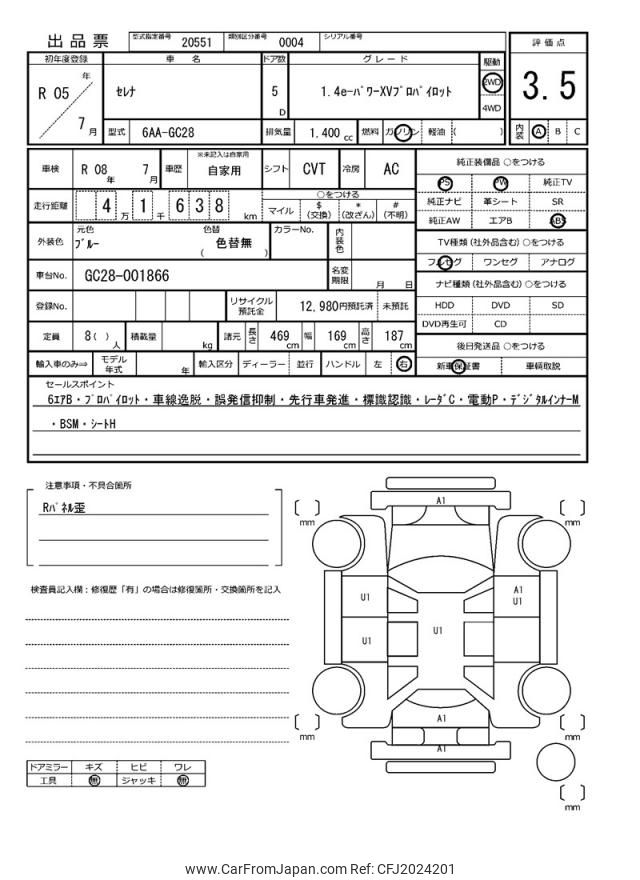 出品票 型式指定番号 20551 類別区分番号 0004 シリアル番号
初年度登録 車名 ドア数 グレード 駆動 評価点
R 05 年 7 月 セレナ 5 D 1.4e-パワーXVプロパイロット 2WD 4WD 3.5
型式 6AA-GC28 排気量 1.400 cc 燃料 ガソリン 軽油 ( ) 内装 A B C
車検 R 08 年 7 月 車歴 ※未記入は自家用 自家用 シフト CVT 冷房 AC
純正装備品 ○をつける
PS PW 純正TV
走行距離 4 万 1 千 6 3 8 km ○をつける
マイル $ (交換) * (改ざん) # (不明)
純正ナビ 革シート SR
純正AW エアB ABS
外装色 元色 ブルー 色替 色替無 ( ) カラーNo. 内装色
TV種類 (社外品含む) ○をつける
フルセグ ワンセグ アナログ
車台No. GC28-001866 名変期限 月 日
ナビ種類 (社外品含む) ○をつける
登録No. リサイクル預託金 12,980円預託済 未預託
HDD DVD SD
DVD再生可 CD
定員 8( ) 人 積載量 kg 諸元 長さ 469 cm 幅 169 cm 高さ 187 cm
後日発送品 ○をつける
輸入車のみ⇒ モデル年式 年 輸入区分 ディーラー 並行 ハンドル 左 右
新車保証書 車輌取説
セールスポイント
6エアB・プロパイロット・車線逸脱・誤発信抑制・先行車発進・標識認識・レーダC・電動P・デジタルインナーM
・BSM・シートH
注意事項・不具合箇所
Rパネル歪
検査員記入欄:修復歴「有」の場合は修復箇所・交換箇所を記入
A1
mm
mm
U1
A1
U1
U1
U1
A1
A1
mm
mm
mm
ドアミラー キズ ヒビ ワレ
工具 無 ジャッキ 無
www.CarFromJapan.com Ref: CFJ2024201